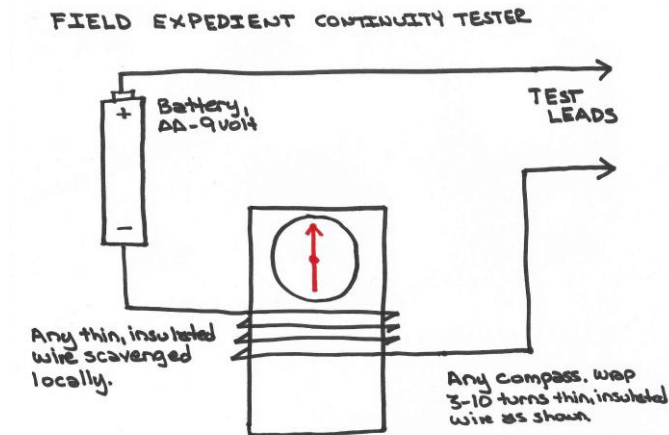 FIELD EXPEDIENT CONTINUITY TESTER
+
Battery,
AA-9volt
-
TEST
LEADS
Any thin, insulated
wire scavenged
locally.
Any compass. wrap
3-10 turns thin, insulated
wire as shown